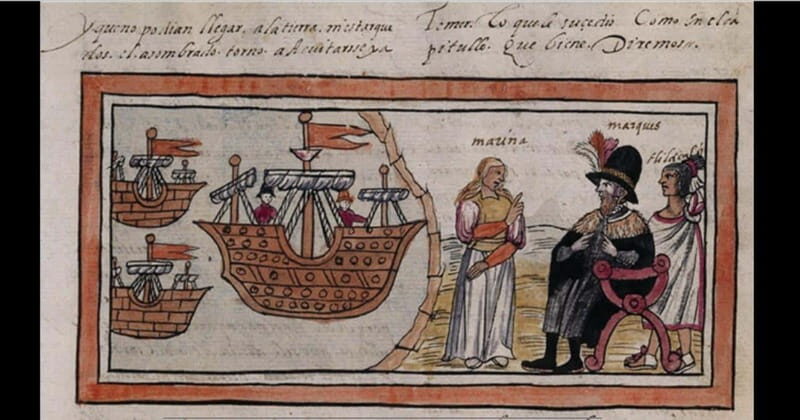 y que no podian llegar. a la tierra. ni estar que
dos. el asombrado. torno. a
Temer. Lo que le suçedio Como
pitulle. Que biene. Diremos.
marina
marques